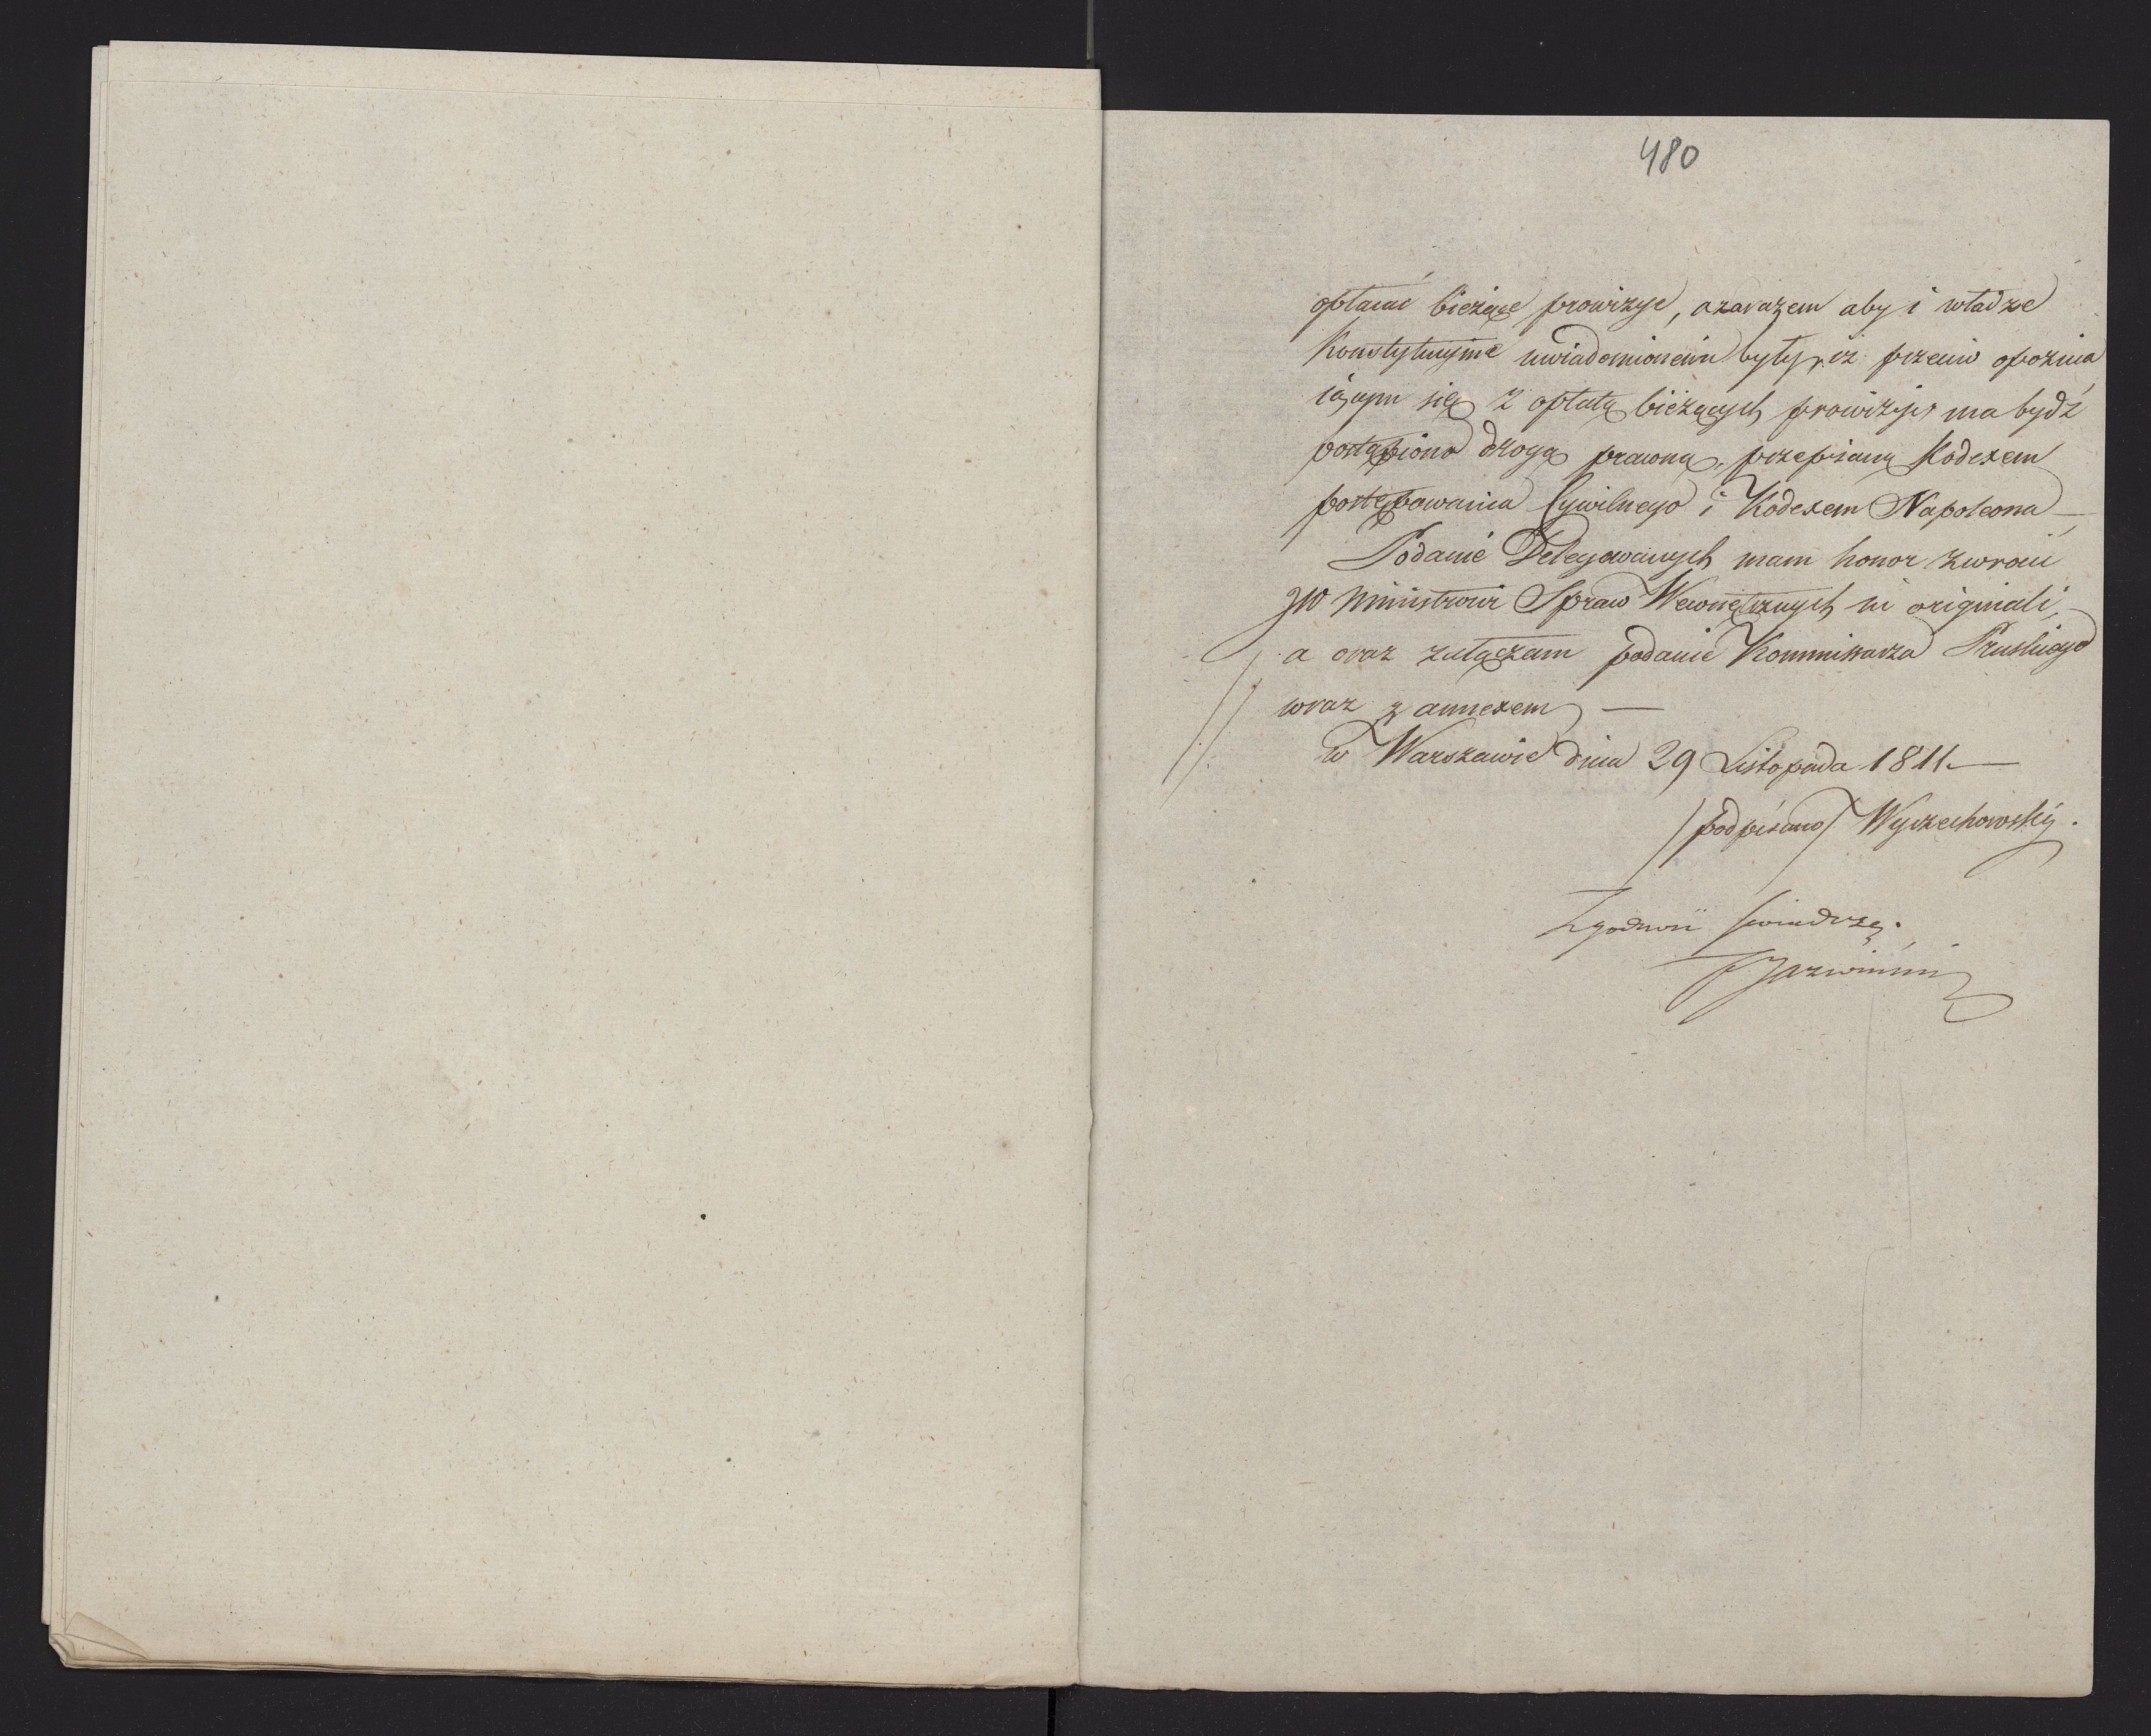 480
opłacać bieżące prowizye, a zarazem aby i władze
Konstytucyine uwiadomionemi były, iż przeciw opoźnia
iącym się z opłatą bieżących prowizyi ma bydź
postąpiono drogą prawną, przepisaną Kodexem
postępowania Cywilnego i Kodexem Napoleona —
Podanie Delegowanych mam honor zwrócić
JW Ministrowi Spraw Wewnętrznych in originali,
a oraz załączam podanie Kommissarza Pruskiego
wraz z annexem —
w Warszawie dnia 29 Listopada 1811. —
/podpisano/ Wyczechowski.
Zgodność świadczę.